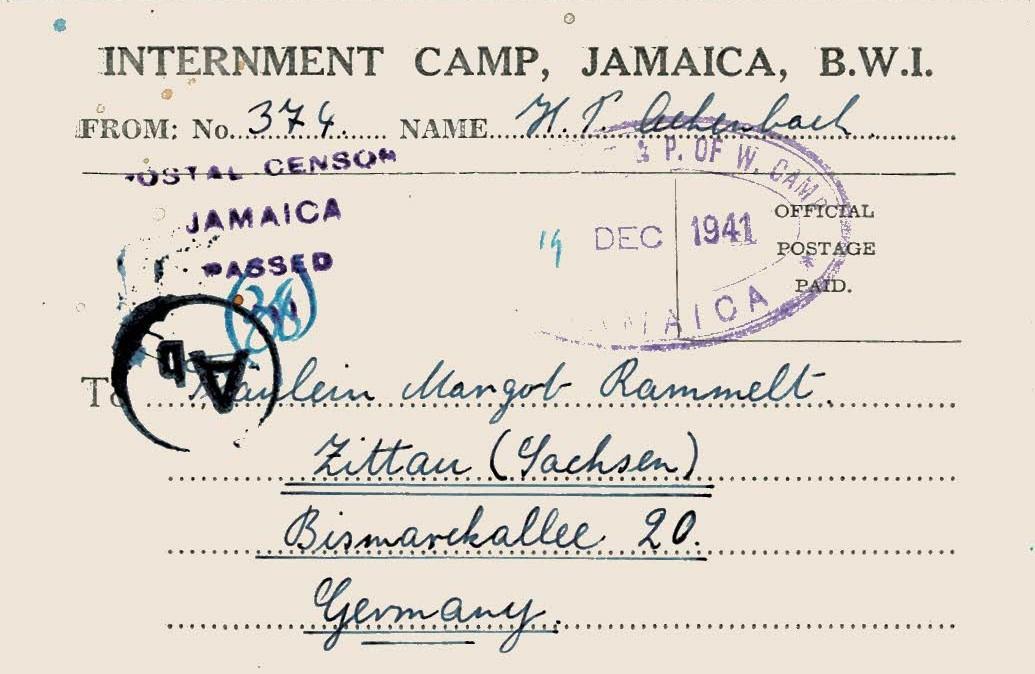 INTERNMENT CAMP, JAMAICA, B.W.I.
FROM: No. 374. NAME H. P. Achenbach.
POSTAL CENSOR
JAMAICA
PASSED
& P. OF W. CAMP
19 DEC 1941
JAMAICA
OFFICIAL
POSTAGE
PAID.
Ab
To Fräulein Margot Rammelt.
Zittau (Sachsen)
Bismarckallee 20.
Germany.